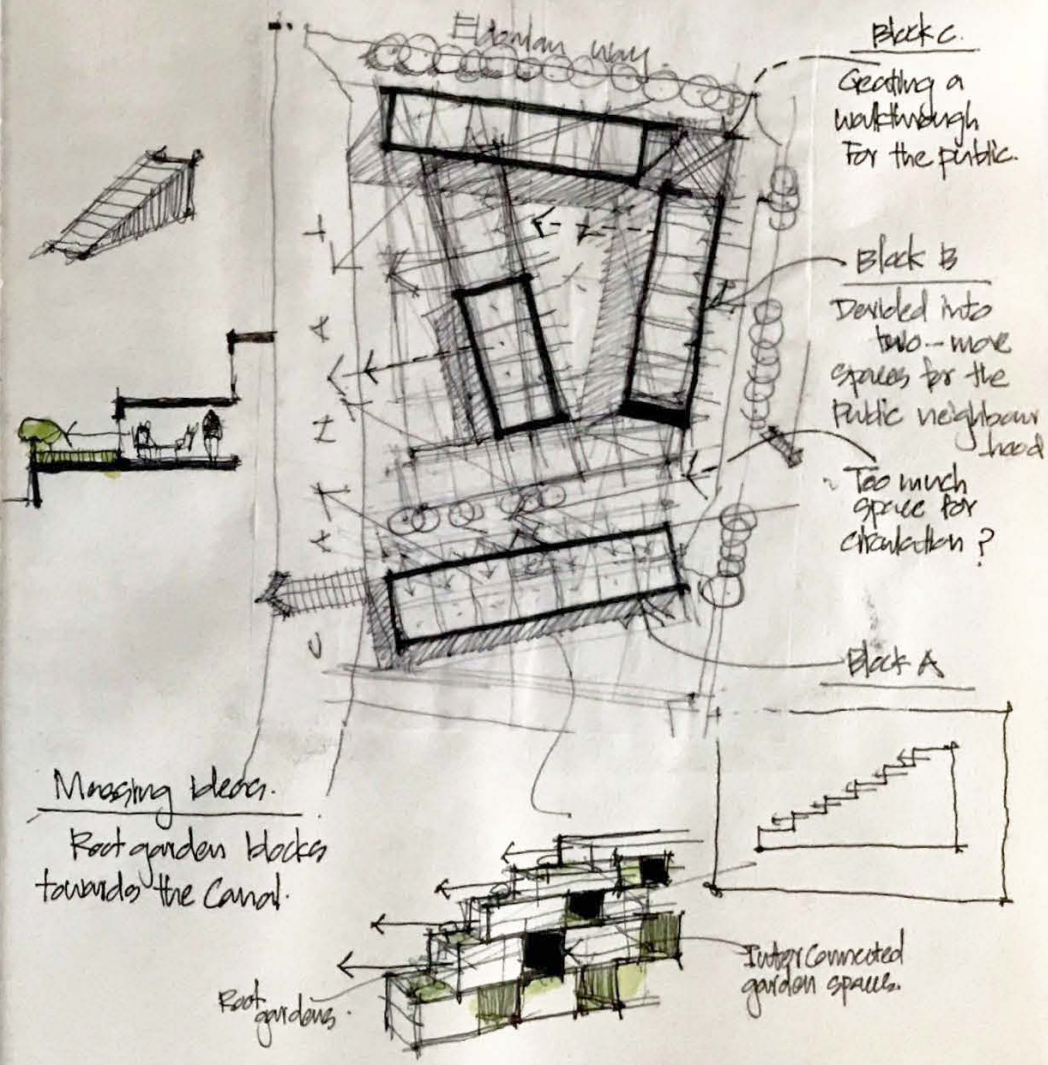 way
Block C.
Creating a
walkthrough
For the public.
Block B
Devided into
two - more
spaces for the
Public neighbour
hood
Too much
space for
circulation ?
Block A
Massing ideas.
Roof garden blocks
towards the Canal.
Roof
gardens.
Inter Connected
garden spaces.